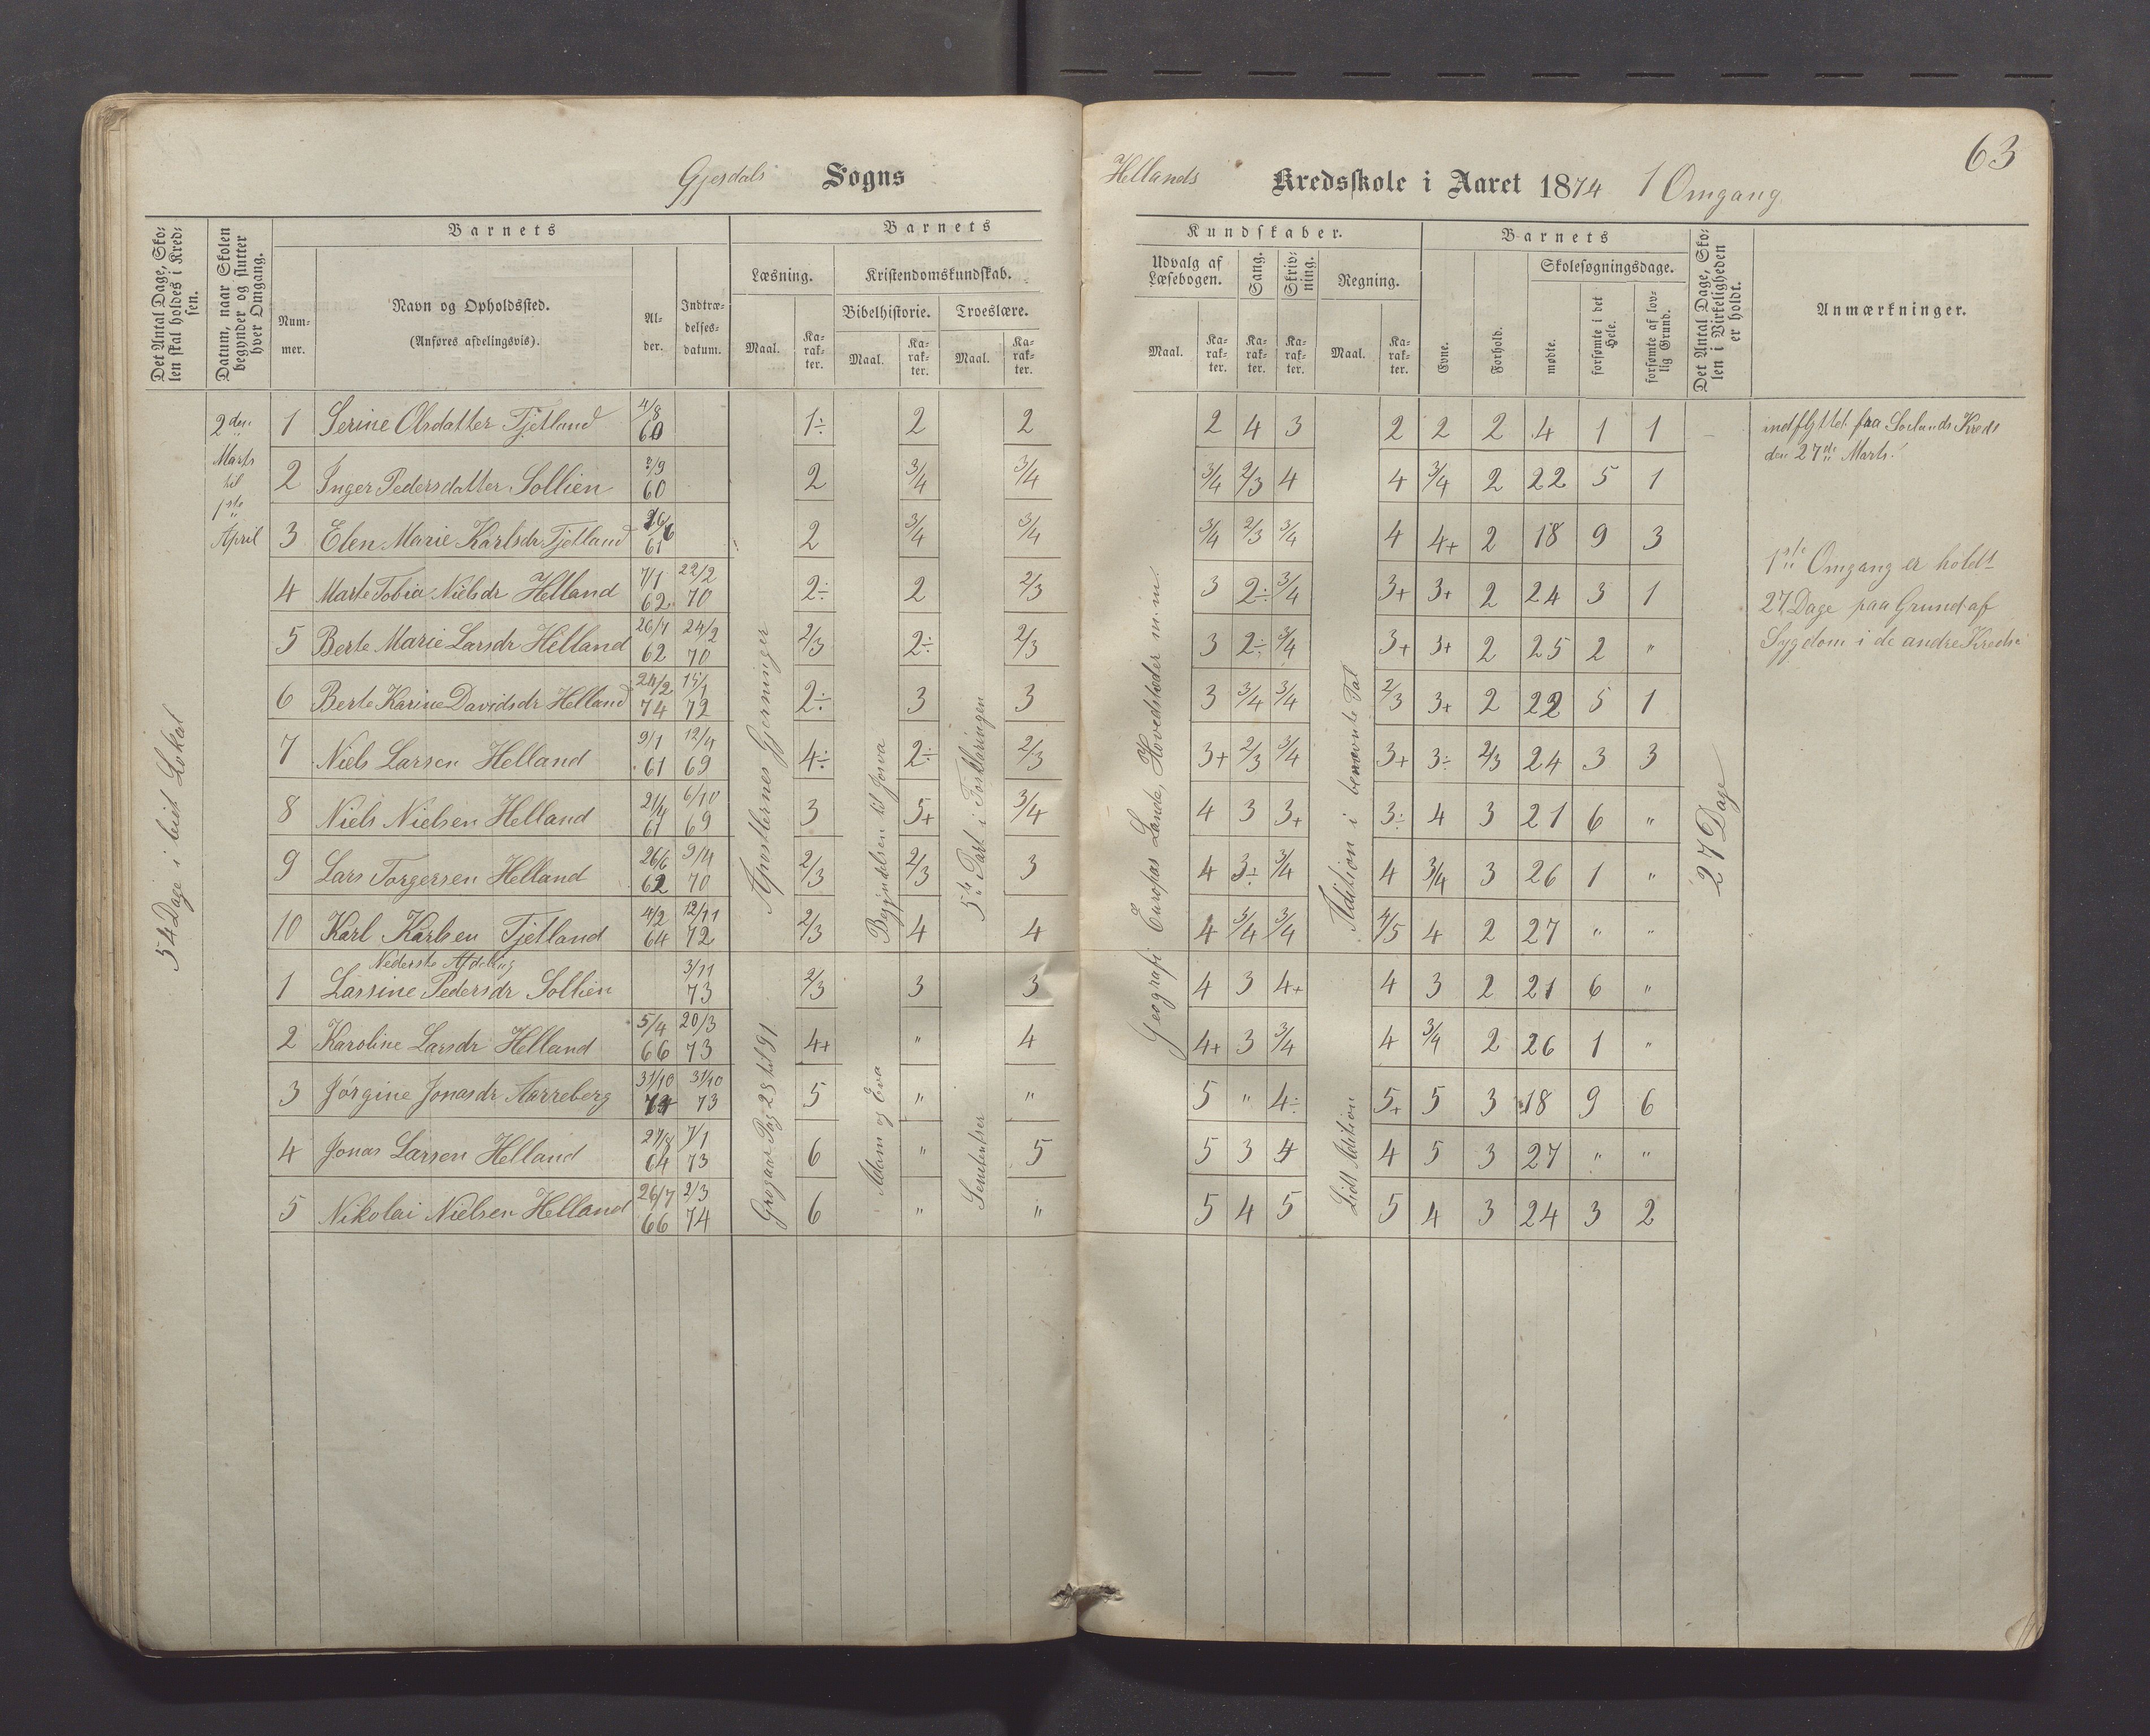 63
Gjesdals Sogns
Hellands Kredsskole i Aaret 1874 1 Omgang
Det Antal Dage, Skolen skal holdes i Kredsen.
Datum, naar Skolen begynder og slutter hver Omgang.
Barnets
Nummer.
Navn og Opholdssted.
(Anføres afdelingsvis).
Alder.
Indtrædelsesdatum.
Barnets
Læsning.
Maal.
Karakter.
Kristendomskundskab.
Bibelhistorie.
Maal.
Karakter.
Troeslære.
Maal.
Karakter.
Kundskaber.
Udvalg af Læsebogen.
Maal.
Karakter.
Sang.
Karakter.
Skrivning.
Karakter.
Regning.
Maal.
Karakter.
Barnets
Evne.
Forhold.
Skolesøgningsdage.
mødte.
forsømte i det Hele.
forsømte af lovlig Grund.
Det Antal Dage, Skolen i Virkeligheden er holdt.
Anmærkninger.
54 Dage i leiet Lokal
2den
Marts
til
1ste
April
Apostlernes Gjerninger
Begyndelsen til Josva
5te Part i Forklaringen
Geografi Europas Lande, Hovedstæder m.m.
Adition i benævnte Tal
27 Dage
1 Serine Olsdatter Tjetland 4/8 60 1÷ 2 2 2 4 3 2 2 2 4 1 1
2 Inger Pedersdatter Sollien 3/9 60 2 3/4 3/4 3/4 2/3 4 4 3/4 2 22 5 1
3 Elen Marie Karlsdr Tjetland 26/6 61 2 3/4 3/4 3/4 2/3 3/4 4 4+ 2 18 9 3
4 Marte Tobia Nielsdr Helland 7/1 62 22/2 70 2÷ 2 2/3 3 2÷ 3/4 3+ 3+ 2 24 3 1
5 Berte Marie Larsdr Helland 26/1 62 24/2 70 2/3 2÷ 2/3 3 2÷ 3/4 3+ 3+ 2 25 2 "
6 Berte Karine Davidsdr Helland 24/2 74 15/1 72 2÷ 3 3 3 3/4 3/4 2/3 3+ 2 22 5 1
7 Niels Larsen Helland 9/1 61 12/4 69 4÷ 2÷ 2/3 3+ 2/3 3/4 3+ 3÷ 2/3 24 3 3
8 Niels Nielsen Helland 21/4 61 6/10 69 3 5+ 3/4 4 3 3+ 3÷ 4 3 21 6 "
9 Lars Torgersen Helland 26/6 62 9/4 70 2/3 2/3 3 4 3÷ 3/4 4 3/4 3 26 1 "
10 Karl Karlsen Tjetland 4/2 64 12/11 72 2/3 4 4 4 3/4 3/4 4/5 4 2 27 " "
Nederste Afdeling
1 Lassine Pedersdr Sollien 3/11 73 2/3 3 3 4 3 4+ 4 3 2 21 6 "
2 Karoline Larsdr Helland 5/4 66 20/3 73 4+ " 4 4+ 3 3/4 4 3/4 2 26 1 "
3 Jørgine Jonasdr Aarreberg 31/10 31/10 73 5 " " 5 " 4÷ 5+ 5 3 18 9 6
4 Jonas Larsen Helland 27/8 64 7/1 73 6 " 5 5 3 4 4 5 3 27 " "
5 Nikolai Nielsen Helland 26/7 66 2/3 74 6 " " 5 4 5 5 4 3 24 3 2
Pag 28 til 91
Adam og Eva
Lidt Adition
indflyttet fra Soelands Kreds
den 27de Marts.
1ste Omgang er holdt
27 Dage paa Grund af
Sygdom i de andre Kredse